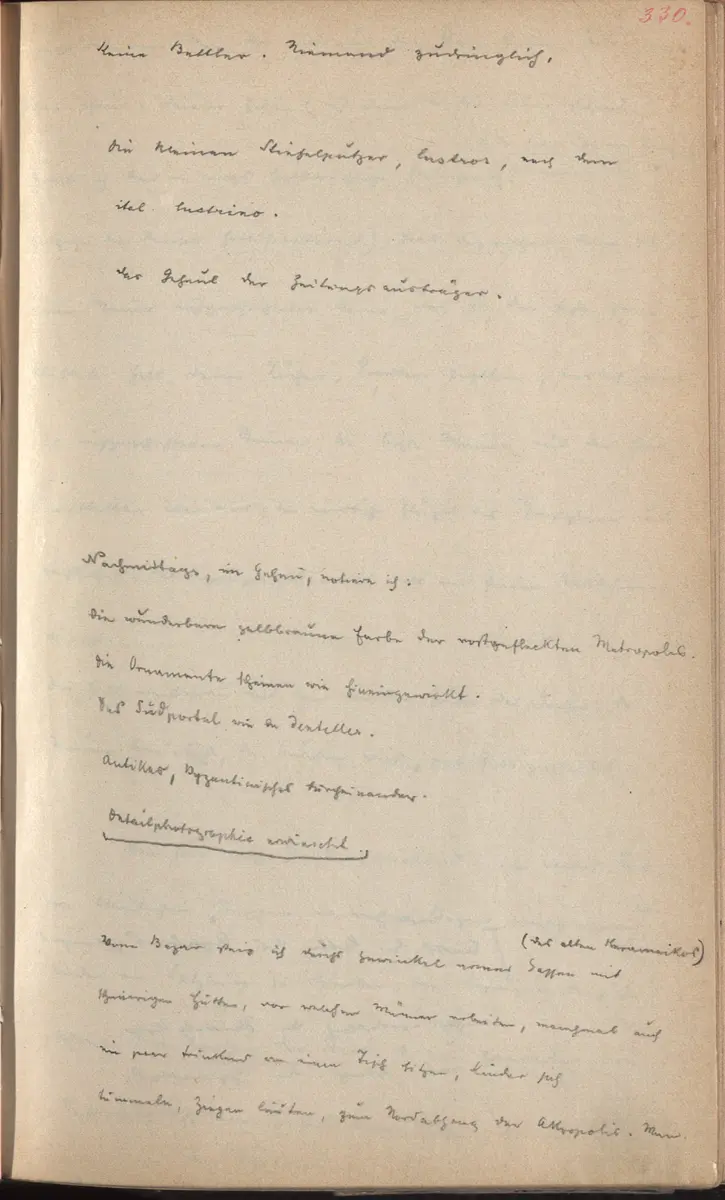 330.
Keine Bettler. Niemand zudringlich.
Die kleinen Stiefelputzer, lustros, nach dem
ital. lustrino.
Das Geheul der Zeitungsausträger.
Nachmittags, im Gehen, notiere ich:
Die wunderbare gelbbraune Farbe der rostgefleckten Metropolis.
Die Ornamente scheinen wie hineingewirkt.
Das Südportal wie Dentelles.
Antikes, Byzantinisches durcheinander.
Detailphotographie erwünscht.
(des alten Kerameikos)
Vom Bazar stieg ich durchs Gewinkel armer Gassen mit
schmierigen Hütten, vor welchen Männer arbeiten, manchmal auch
ein paar trinkend an einem Tisch sitzen, Kinder sich
tummeln, Ziegen läuten, zum Nordabhang der Akropolis. Man